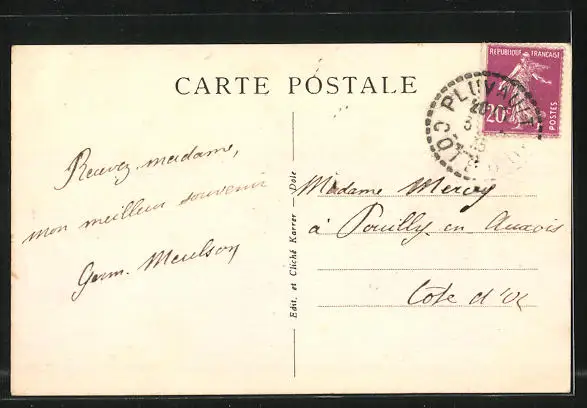 CARTE POSTALE
REPUBLIQUE FRANÇAISE
20c
POSTES
PLUVAULT
CÔTE D'OR
Recevez madame,
mon meilleur souvenir
Germ. Meulson
Edit. et Cliché Karrer — Dôle
Madame Mercey
à Pouilly en Auxois
Côte d'Or